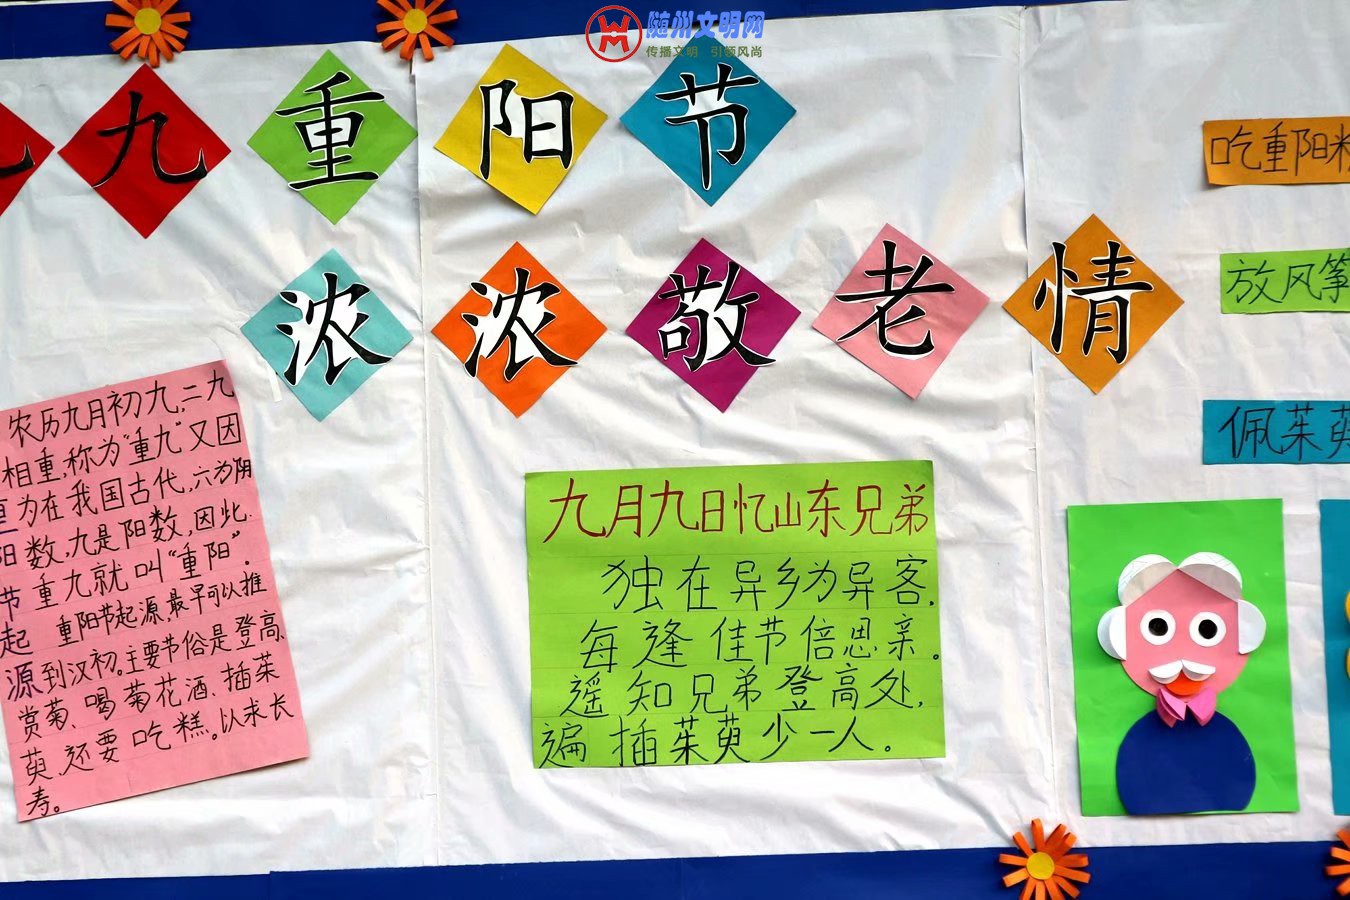 随州文明网
传播文明 引领风尚
九重阳节
浓浓敬老情
农历九月初九,二九
相重,称为"重九"又因
为在我国古代,六为阴
阳数,九是阳数,因此,
节重九就叫"重阳"。
起 重阳节起源,最早可以推
源到汉初。主要节俗是登高、
赏菊、喝菊花酒、插茱
萸、还要吃糕。以求长
寿。
九月九日忆山东兄弟
独在异乡为异客,
每逢佳节倍思亲。
遥知兄弟登高处,
遍插茱萸少一人。
吃重阳
放风筝
佩茱萸